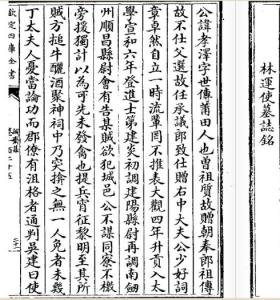 林運使墓誌銘
公諱孝澤字世傳莆田人也曽祖質故贈朝奉郎祖傳
故不仕父選故任承議郎致仕贈右中大夫公少好詞
章卓然自立一時流輩罔不推表大觀四年升貢入太
學宣和六年登進士第建炎初調建陽縣尉再調南劍
州順昌縣尉會有苦菜賊欲犯城邑公不謀同寮不檄
旁援獨計以為可先未發禽也提兵宵征黎明至其所
賊方搥牛釃酒聚神祠中乃突擒之無一人免者未幾
丁太夫人憂當論功而郡僚有沮格者通判吳建曰使
欽定四庫全書